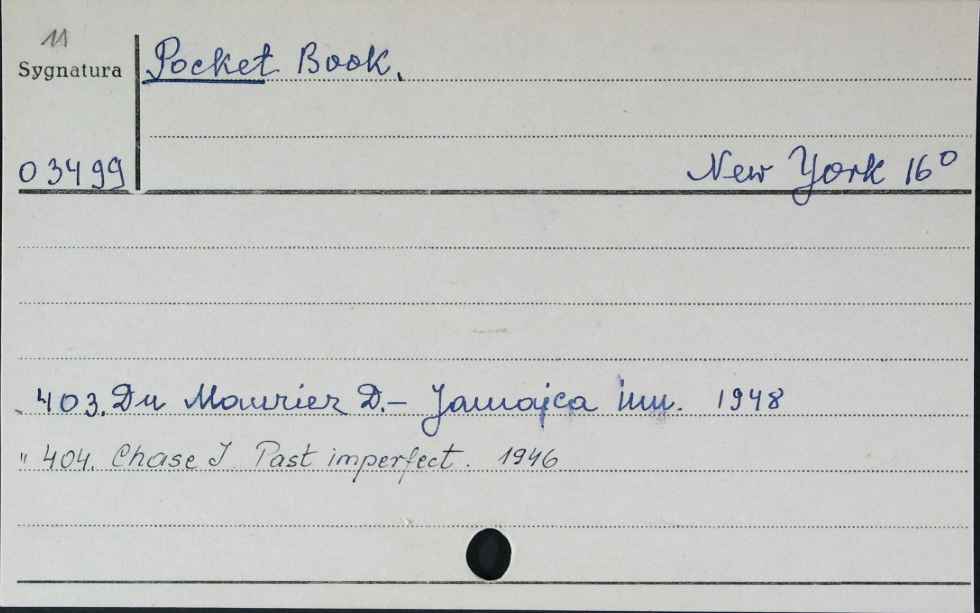 11
Sygnatura Pocket Book.
03499 New York 16°
403. Du Maurier D. – Jamajca inn. 1948
" 404. Chase J Past imperfect. 1946